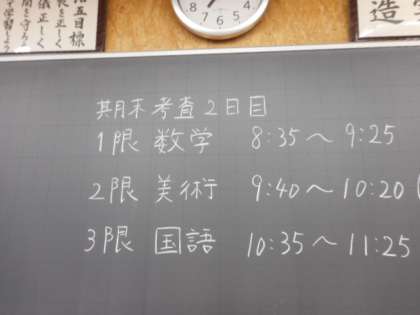 期末考査2日目
1限 数学 8:35～9:25
2限 美術 9:40～10:20
3限 国語 10:35～11:25
造